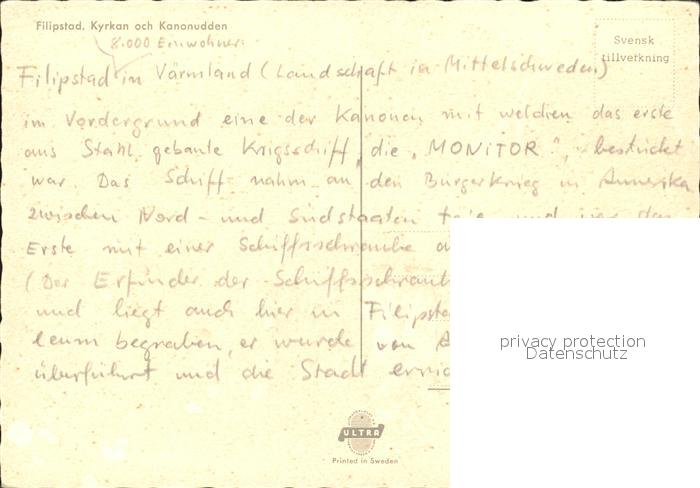 Filipstad. Kyrkan och Kanonudden
8.000 Einwohner
Svensk
tillverkning
Filipstad in Värmland (Landschaft in Mittelschweden)
im Vordergrund eine der Kanonen mit welchen das erste
aus Stahl gebaute Krigsschiff, die "MONITOR", bestückt
war. Das Schiff nahm an den Bürgerkrieg in Amerika
zwischen Nord- und Südstaaten teil und war das
Erste mit einer Schiffsschraube
(Der Erfinder der
und liegt auch hier in
leum begraben, er wurde von
überführt und die Stadt
privacy protection
Datenschutz
ULTRA
Printed in Sweden